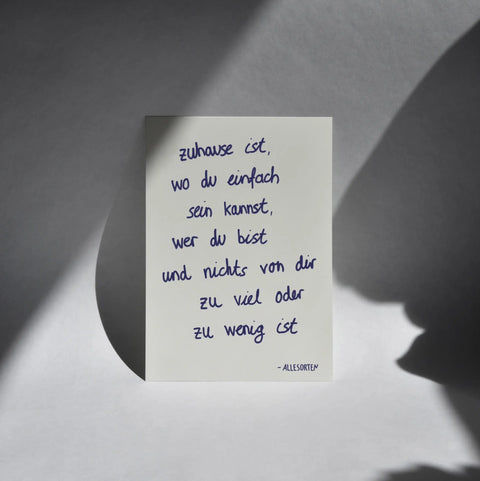 zuhause ist,
wo du einfach
sein kannst,
wer du bist
und nichts von dir
zu viel oder
zu wenig ist
- ALLESORTEN